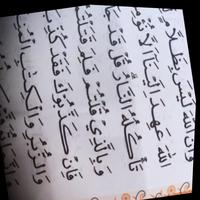 وَأَنَّ ٱللَّهَ لَيْسَ بِظَلَّامٍ
ٱللَّهَ عَهِدَ إِلَيْنَآ أَلَّا
تَأْكُلُهُ ٱلنَّارُ قُلْ قَدْ
وَبِٱلَّذِى قُلْتُمْ فَلِمَ
فَإِن كَذَّبُوكَ فَقَدْ كُذِّبَ
وَٱلزُّبُرِ وَٱلْكِتَٰبِ